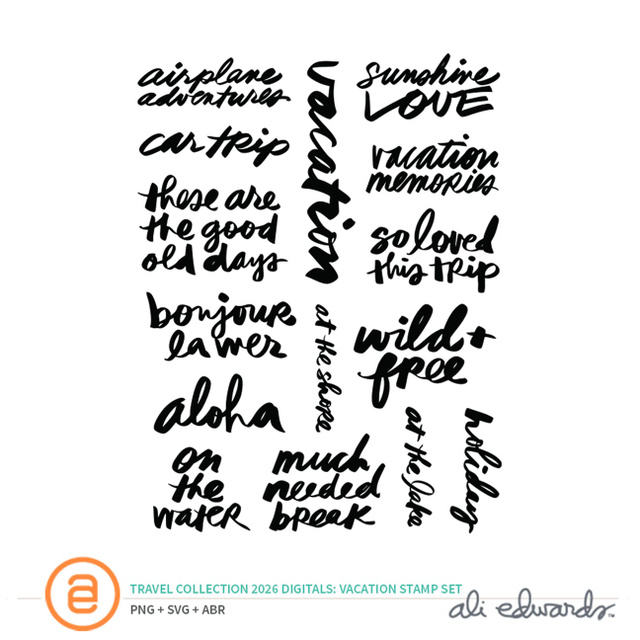 airplane
adventures
car trip
these are
the good
old days
bonjour
la mer
aloha
on
the
water
vacation
at the shore
much
needed
break
sunshine
LOVE
vacation
memories
so loved
this trip
wild +
free
at the lake
holiday
TRAVEL COLLECTION 2026 DIGITALS: VACATION STAMP SET
PNG + SVG + ABR
ali edwards